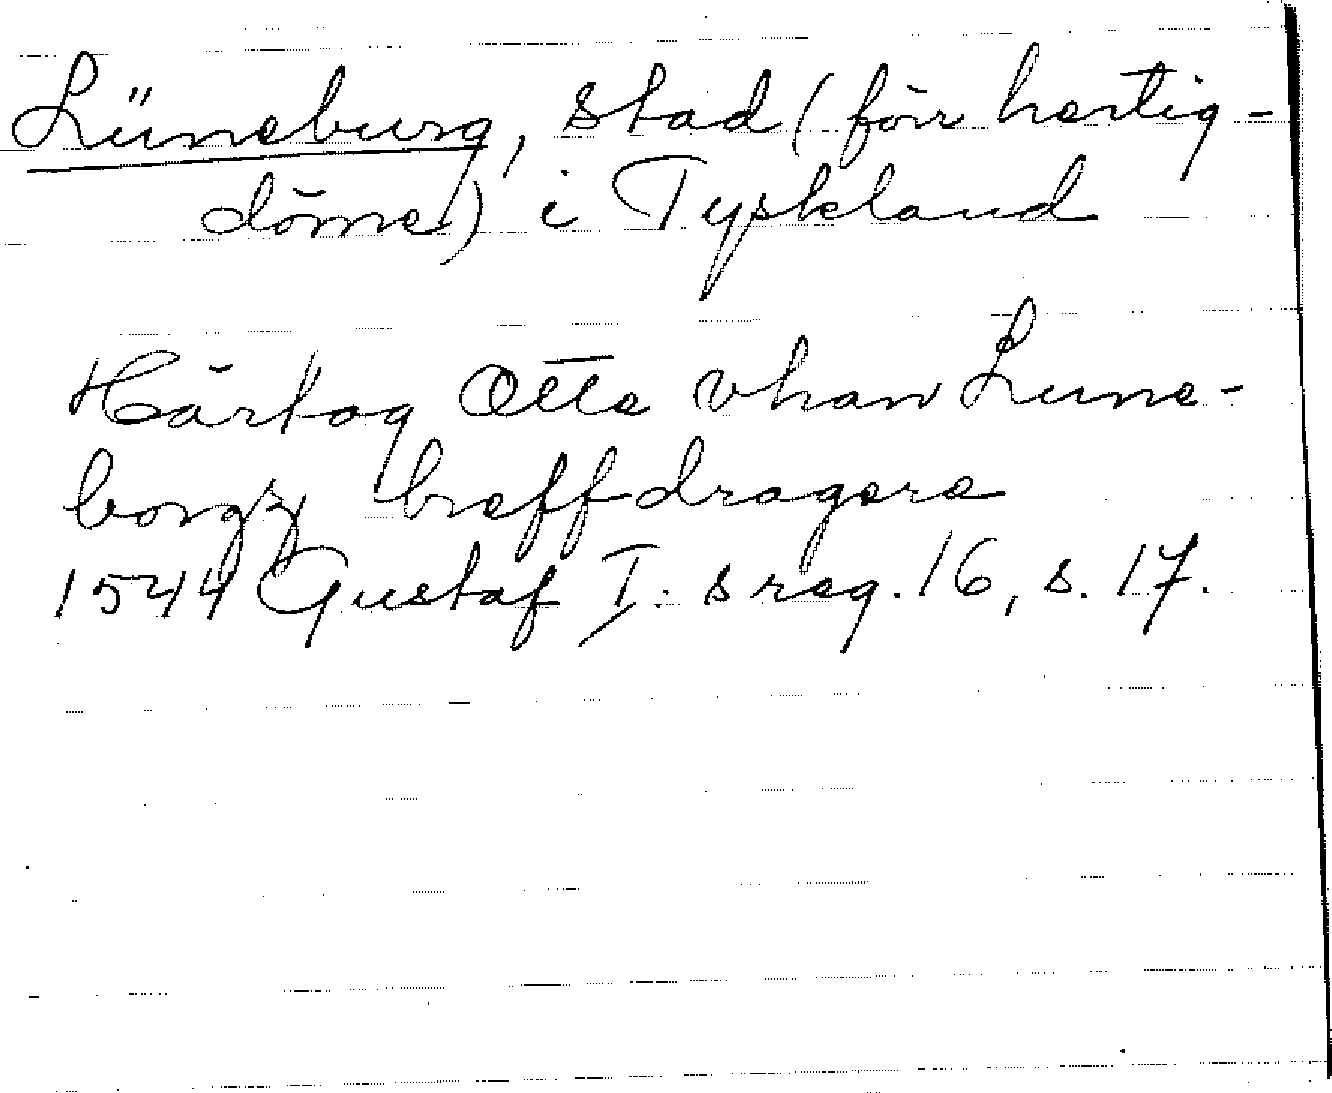 Lüneburg, stad (förr hertig-
döme) i Tyskland
Härtog Otte vhan Lune-
borgz breffdragere
1544 Gustaf I:s reg. 16, s. 17.